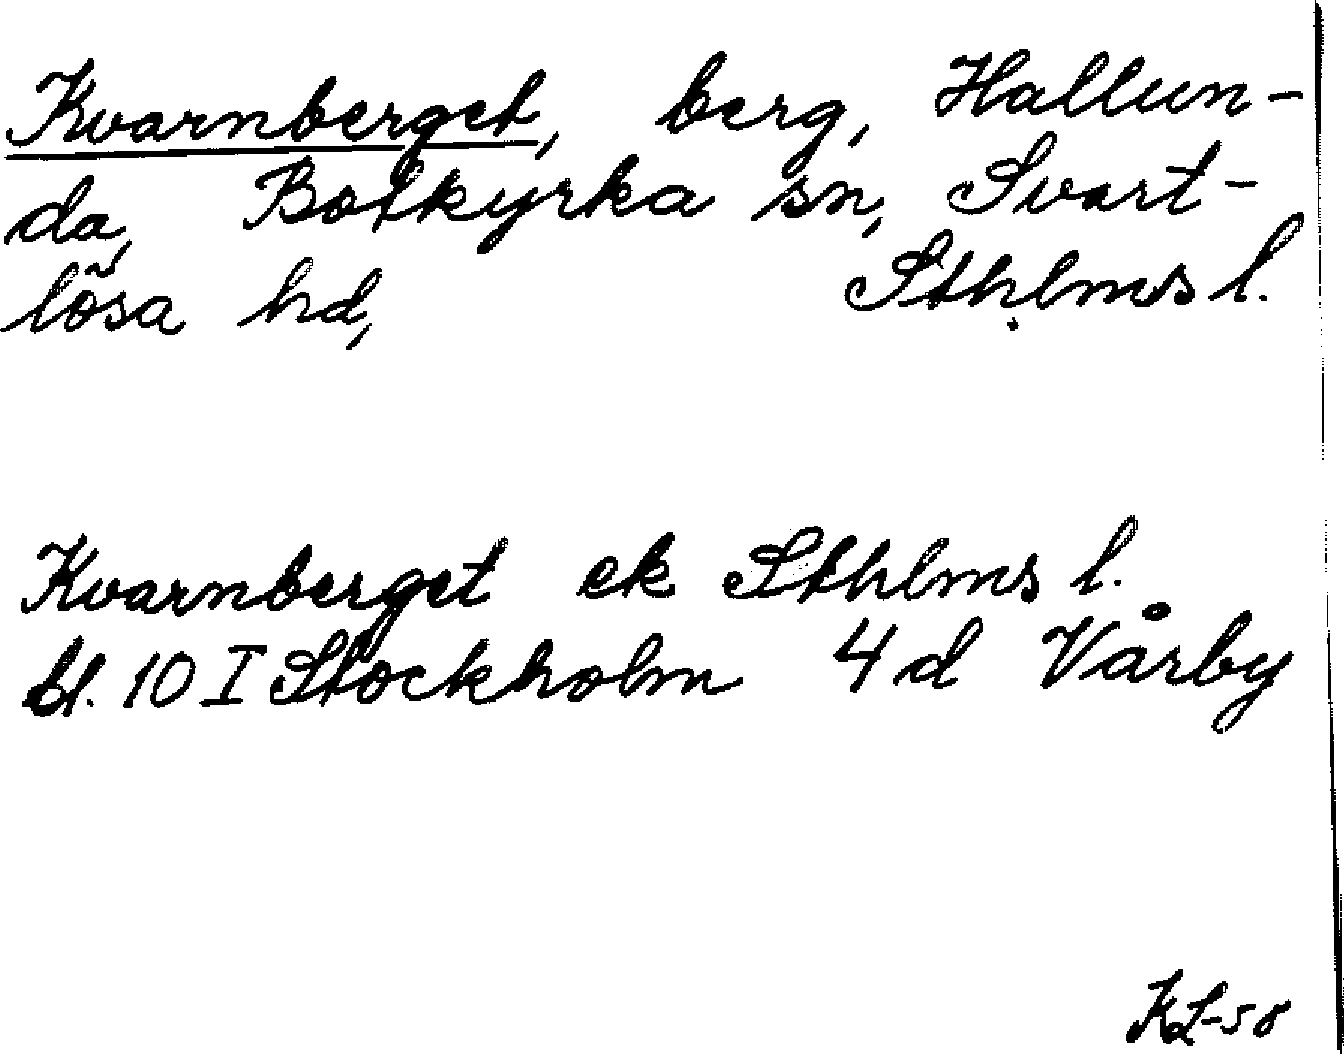 Kvarnberget, berg, Hallun-
da, Botkyrka sn, Svart-
lösa hd, Sthlms l.
Kvarnberget ek Sthlms l.
bl. 10 I Stockholm 4 d Vårby
KL-58